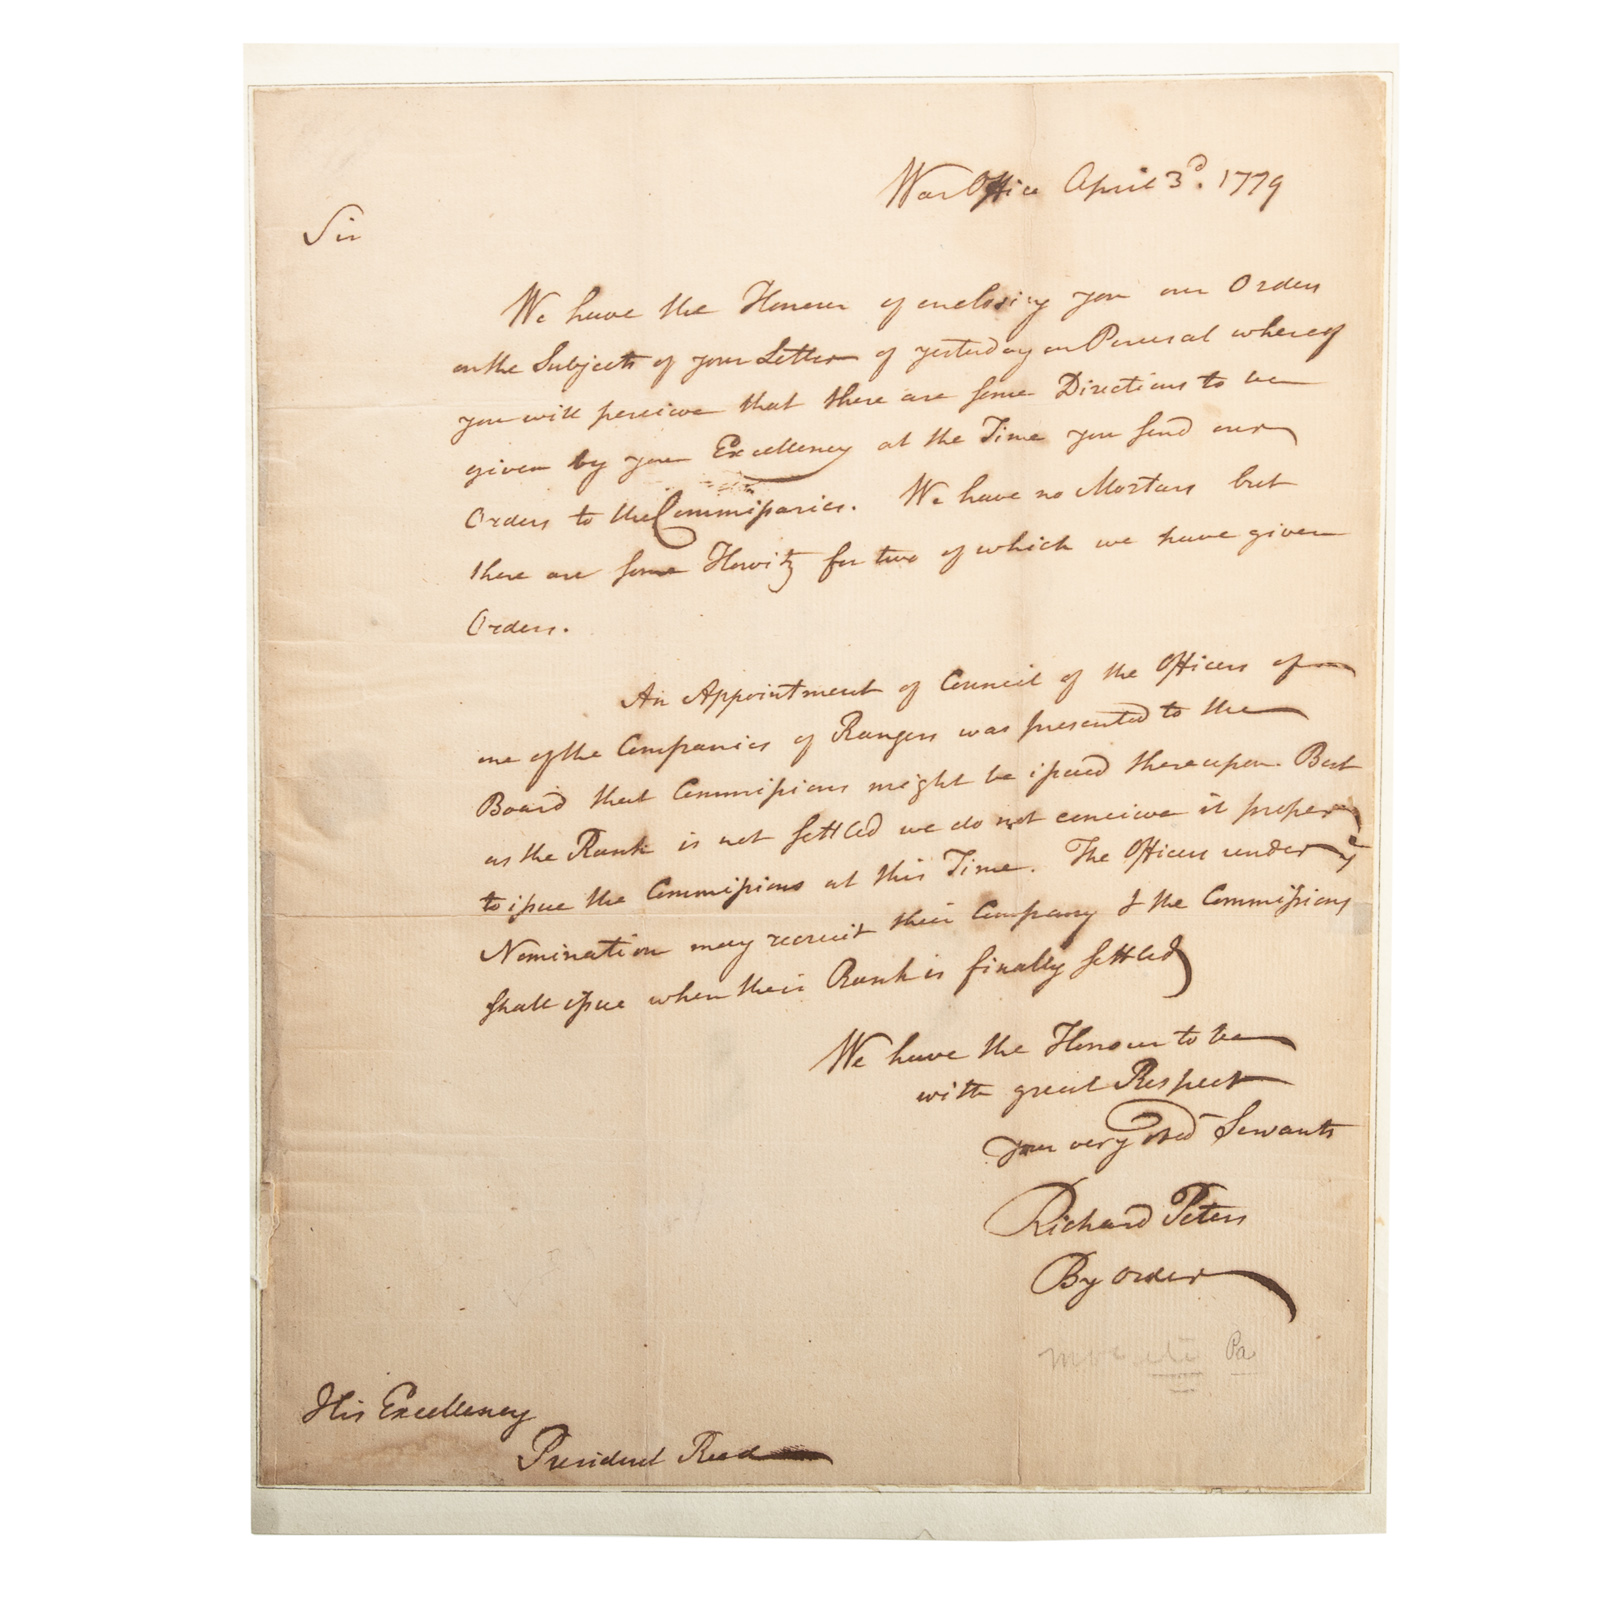 War Office April 3d. 1779
Sir
We have the Honour of enclosing you our Orders
on the Subjects of your Letter of yesterday on Perusal whereof
you will perceive that there are some Directions to be
given by your Excellency at the Time you send our
Orders to the Commissaries. We have no Mortars but
there are some Howitz for two of which we have given
Orders.
An Appointment of Council of the Officers of
one of the Companies of Rangers was presented to the
Board that Commissions might be issued thereupon. But
as the Rank is not settled we do not conceive it proper
to issue the Commissions at this Time. The Officers under ye
Nomination may recruit their Company & the Commissions
shall issue when their Rank is finally settled
We have the Honour to be
with great Respect
your very obed Servants
Richard Peters
By order
Pa
His Excellency
President Reed